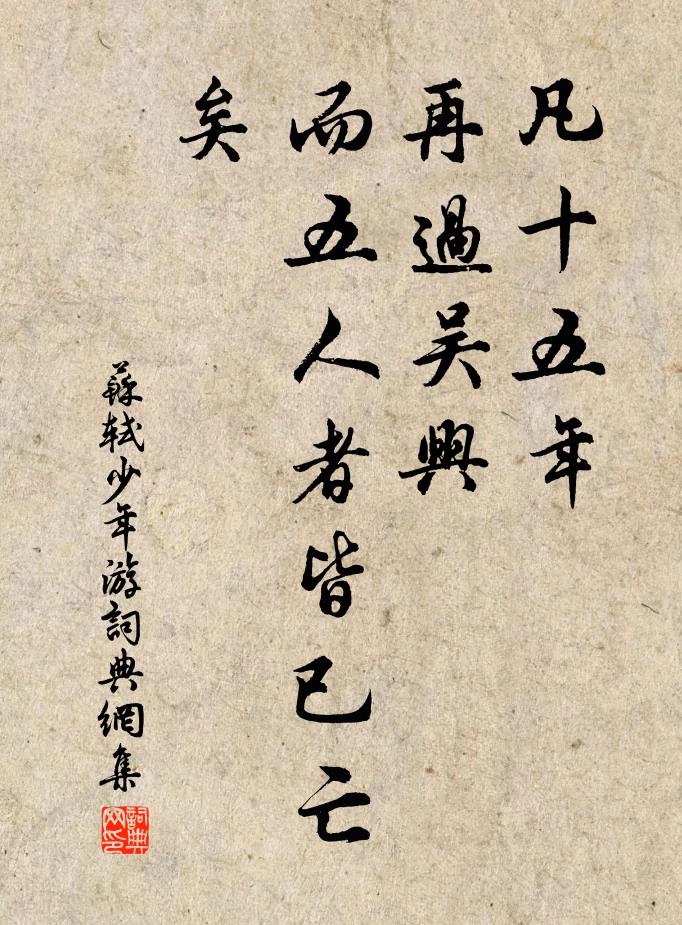 凡十五年
再過吴興
而五人者皆已亡
矣
蘇軾少年游詞典網集
詞典网印